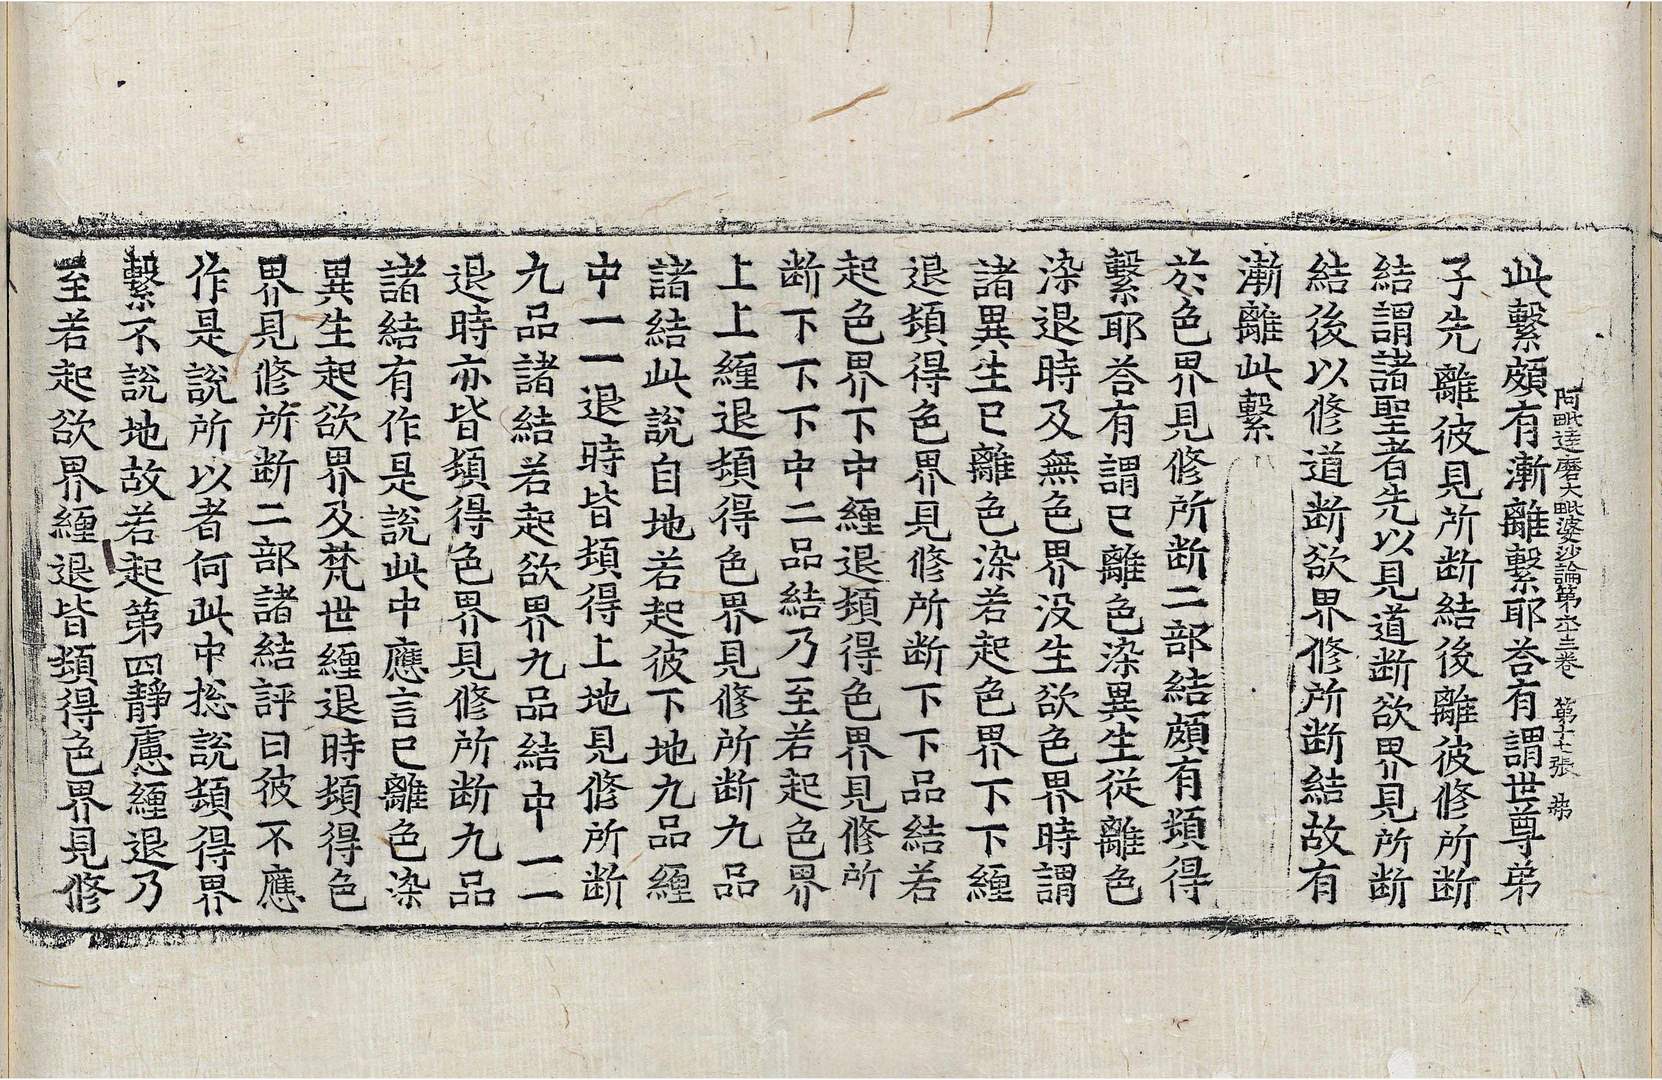 阿毗達磨大毗婆沙論第六十三卷 第十七張 弟
此繫頗有漸離繫耶荅有謂世尊弟
子先離彼見所断結後離彼修所断
結謂諸聖者先以見道断欲界見所断
結後以修道断欲界修所断結故有
漸離此繫
於色界見修所断二部結頗有頓得
繫耶荅有謂已離色染異生從離色
染退時及無色界没生欲色界時謂
諸異生已離色染若起色界下下纏
退頓得色界見修所断下下品結若
起色界下中纏退頓得色界見修所
断下下下中二品結乃至若起色界
上上纏退頓得色界見修所断九品
諸結此說自地若起彼下地九品纏
中一一退時皆頓得上地見修所断
九品諸結若起欲界九品結中一一
退時亦皆頓得色界見修所断九品
諸結有作是說此中應言已離色染
異生起欲界及梵世纏退時頓得色
界見修所断二部諸結評曰彼不應
作是說所以者何此中揔說頓得界
繫不說地故若起第四靜慮纏退乃
至若起欲界纏退皆頓得色界見修